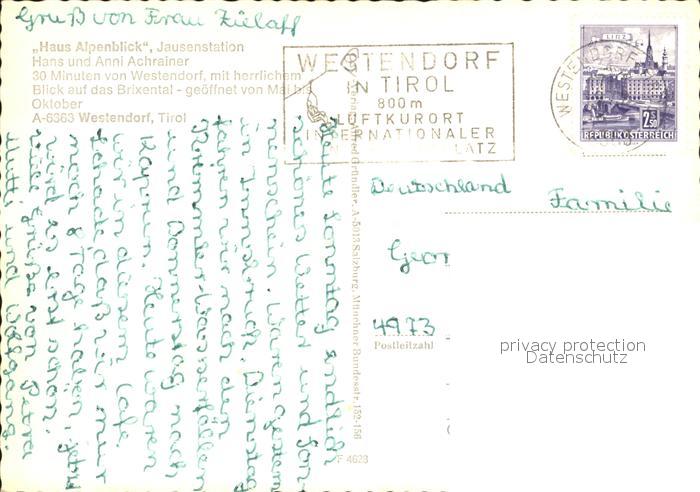 Gruß von Frau Zülaff
„Haus Alpenblick“, Jausenstation
Hans und Anni Achrainer
30 Minuten von Westendorf, mit herrlichem
Blick auf das Brixental - geöffnet von Mai bis
Oktober
A-6363 Westendorf, Tirol
WESTENDORF
IN TIROL
800m
LUFTKURORT
INTERNATIONALER
LINZ
WESTENDORF
2.50
REPUBLIK ÖSTERREICH
Heute Sonntag endlich
schönes Wetter und Son-
nenschein. Waren gestern
in Innsbruck. Dienstag
fahren wir nach den
Krimmler-Wasserfällen
und Donnerstag nach
Heute waren
wir in diesem Cafe.
Schade daß wir nur
noch Tage haben, jetzt
wird es erst schön.
Viele Grüße von Petra
Utti und Wolfgang.
A-5013 Salzburg, Münchner Bundesstr. 152-156
F 4623
Deutschland
Familie
Geor
4973
Postleitzahl
privacy protection
Datenschutz